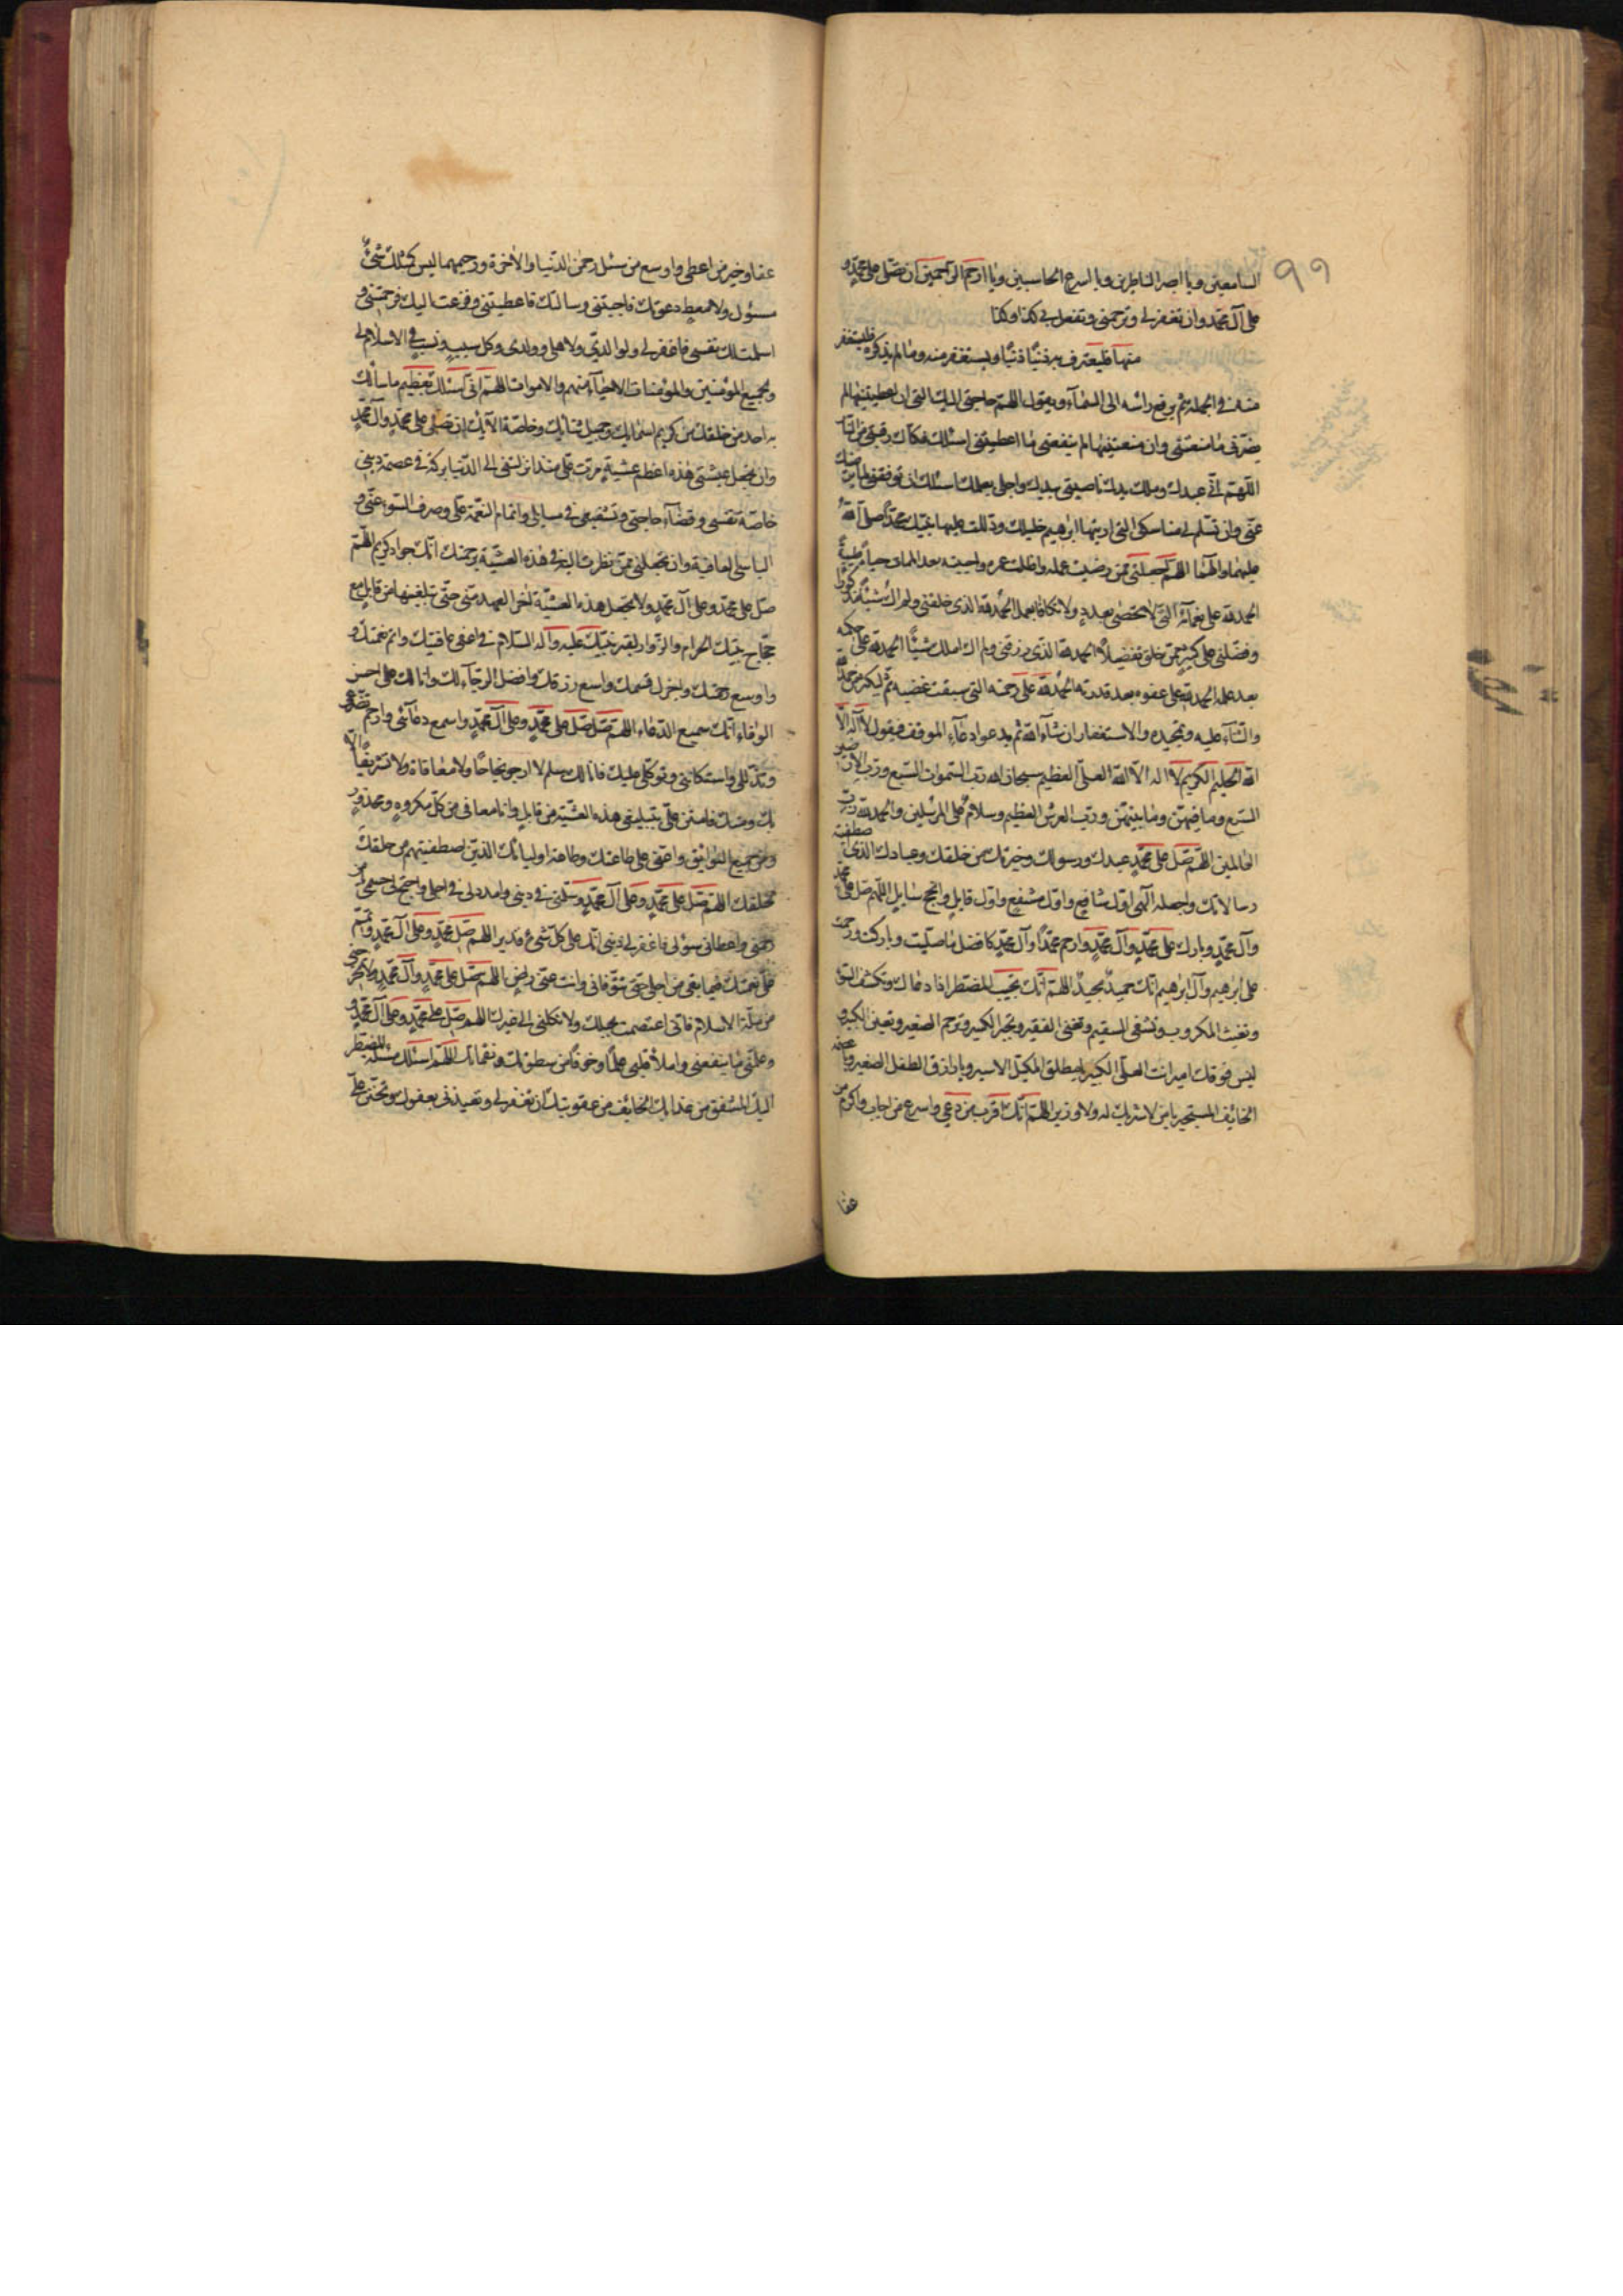 ٩٩
السامعين ويا ابصر الناظرين ويا اسرع الحاسبين ويا ارحم الراحمين ان تصلّى على محمّدٍ و
على آل محمّد وان تغفر لى وترحمنى وتفعل بى كذا وكذا
منها فليعترف به ذنبًا ذنبًا ويستغفر منه وما لم يذكره فليستغفر
منه فى الجملة ثم يرفع رأسه الى السّمآء ويقول اللهمّ حاجتى اليك التى ان اعطيتنيها لم
يضرّنى ما منعتنى وان منعتنيها لم ينفعنى ما اعطيتنى اسئلك فكاك رقبتى من النّار
اللّهمّ انّى عبدك وملك يدك ناصيتى بيدك واجلى بعلمك اسئلك ان توفّقنى لما يرضيك
عنّى وان تسلّم لى مناسكى التى اريتها ابرهيم خليلك ودللت عليها نبيّك محمّدًا صلّى اللّه
عليهما وآلهما اللهمّ اجعلنى ممّن رضيت عمله واطلت عمره واحييته بعد المماة حياةً طيّبةً
الحمد للّه على نعمآئه التى لا تحصى بعددٍ ولا تكافا بعمل الحمد للّه الذى خلقنى ولم اك شيئًا مذكورًا
وفضّلنى على كثيرٍ ممّن خلق تفضيلًا الحمد للّه الذى رزقنى ولم اك املك شيئًا الحمد للّه على حلمه
بعد علمه الحمد للّه على عفوه بعد قدرته الحمد للّه على رحمته التى سبقت غضبه ثمّ ليكثر من حمد اللّه
والثنآء عليه وتمجيده والاستغفار ان شآء اللّه ثم يدعوا دعآء الموقف فيقول لا آله الّا
اللّه الحليم الكريم لا اله الّا اللّه العلىّ العظيم سبحان الله ربّ السّموات السّبع وربّ الارضين
السّبع وما فيهنّ وما بينهنّ وربّ العرش العظيم وسلامٌ على المرسلين والحمد للّه ربّ
العالمين اللهمّ صلّ على محمّدٍ عبدك ورسولك وخيرتك من خلقك وعبادك الذى اصطفيته
رسالاتك واجعله آلهى اوّل شافعٍ واوّل مشفّعٍ واوّل قايلٍ وانجح سايلٍ اللّهمّ صلّ على محمّد
وآل محمّدٍ وبارك على محمّدٍ وآل محمّدٍ وارحم محمّدًا وآل محمّدٍ كافضل ما صلّيت وباركت ورحمت
على ابرهيم وآل ابرهيم انّك حميدٌ مجيدٌ اللهمّ انّك تجيب المضطرّ اذا دعاك وتكشف السّوء
وتغيث المكروب وتشفى السقيم وتغنى الفقير وتجبر الكسير وترحم الصغير وتعين الكبير
ليس فوقك امير انت العلىّ الكبير يا مطلق المكبّل الاسير ويا رازق الطفل الصغير ويا عصمة
الخائف المستجير يا من لا شريك له ولا وزير اللهمّ انّك اقرب من دعى واسرع من اجاب واكرم من
عفا
عفا وخير من اعطى واوسع من سئل رحمن الدّنيا والاخرة ورحيمهما ليس كمثلك شئٌ
مسئول ولا معطٍ دعوتك فاجبتنى وسالتك فاعطيتنى وفزعت اليك فرحمتنى و
اسلمت لك نفسى فاغفر لى ولوالدىّ ولاهلى وولدى وكل سببٍ ونسب فى الاسلام لى
ولجميع المؤمنين والمؤمنات الاحيآء منهم والاموات اللهمّ انى اسئلك بعظيم ما سألك
به احد من خلقك من كريم اسمايك وجميل ثنائك وخاصّة آلائك ان تصلى على محمّدٍ وآل محمّدٍ
وان تجعل عشيّتى هذه اعظم عشيّةٍ مرّت علىّ منذ انزلتنى الى الدّنيا بركةً فى عصمة دينى
خاصّة نفسى وقضآء حاجتى وتشفيعى فى مسايلى واتمام النعمة علىّ وصرف السّوء عنّى و
الباسى العافية وان تجعلنى ممّن نظرت اليه فى هذه العشيّة برحمتك انّك جواد كريم اللهمّ
صلّ على محمّد وعلى آل محمّدٍ ولا تجعل هذه العشيّة آخر العهد منّى حتى تبلّغنيها من قابلٍ مع
حجّاج بيتك الحرام والزّوار لقبر نبيّك عليه وآله السّلام فى اعفى عافيتك واتمّ نعمتك و
واوسع رحمتك واجزل قسمك واسع رزقك وافضل الرجآء لك وانا لك على احسن
الوفاء انّك سميع الدّعاء اللهمّ صلّ صلّ على محمّدٍ وعلى آل محمّدٍ واسمع دعآئى وارحم تضرّعى
وتذلّلى واستكانتى وتوكّلى عليك فانا لك سلم لا ارجو نجاحًا ولا معافاة ولا تشريفًا الّا
بك ومنك فامنن علىّ بتبليغى هذه العشيّة من قابلٍ وانا معافى من كل مكروهٍ ومحذورٍ
ومن جميع البوايق واعنّى على طاعتك وطاعة اوليائك الذين اصطفيتهم من خلقك
لخلقك اللهمّ صلّ على محمّدٍ وعلى آل محمّدٍ وسلّمنى فى دينى وامدد لى فى اجلى واصحّ لى جسمى يا من
رحمنى واعطانى سؤلى فاغفر لى ذنبى انّك على كلّ شئ قدير اللهمّ صلّ على محمّدٍ وعلى آل محمّدٍ وتمّم
علىّ نعمتك فيما بقى من اجلى حتى تتوفّانى وانت عنّى راضٍ اللهمّ صلّ على محمّدٍ وآل محمّدٍ ولا تخرجنى
من ملّة الاسلام فانّى اعتصمت بحبلك ولا تكلنى الى غيرك اللهمّ صلّ على محمّدٍ وعلى آل محمّدٍ و
وعلّمنى ما ينفعنى واملأ قلبى علمًا وخوفًا من سطوتك ونقماتك اللهمّ اسئلك مسئلة المضطرّ
اليك المشفق من عذابك الخائف من عقوبتك ان تغفر لى وتعيذنى بعفوك وتحنّن علىّ